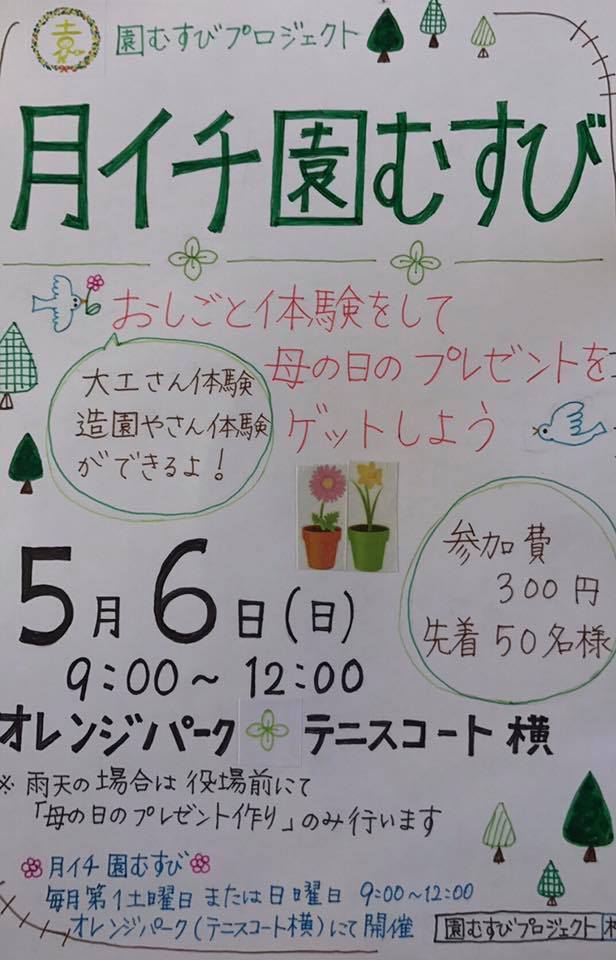 園
園むすびプロジェクト
月イチ園むすび
おしごと体験をして
母の日のプレゼントを
ゲットしよう
大工さん体験
造園やさん体験
ができるよ!
参加費
300円
先着50名様
5月6日(日)
9:00~12:00
オレンジパーク テニスコート横
※雨天の場合は役場前にて
「母の日のプレゼント作り」のみ行います
月イチ園むすび
毎月第1土曜日または日曜日 9:00~12:00
オレンジパーク(テニスコート横)にて開催
園むすびプロジェクト